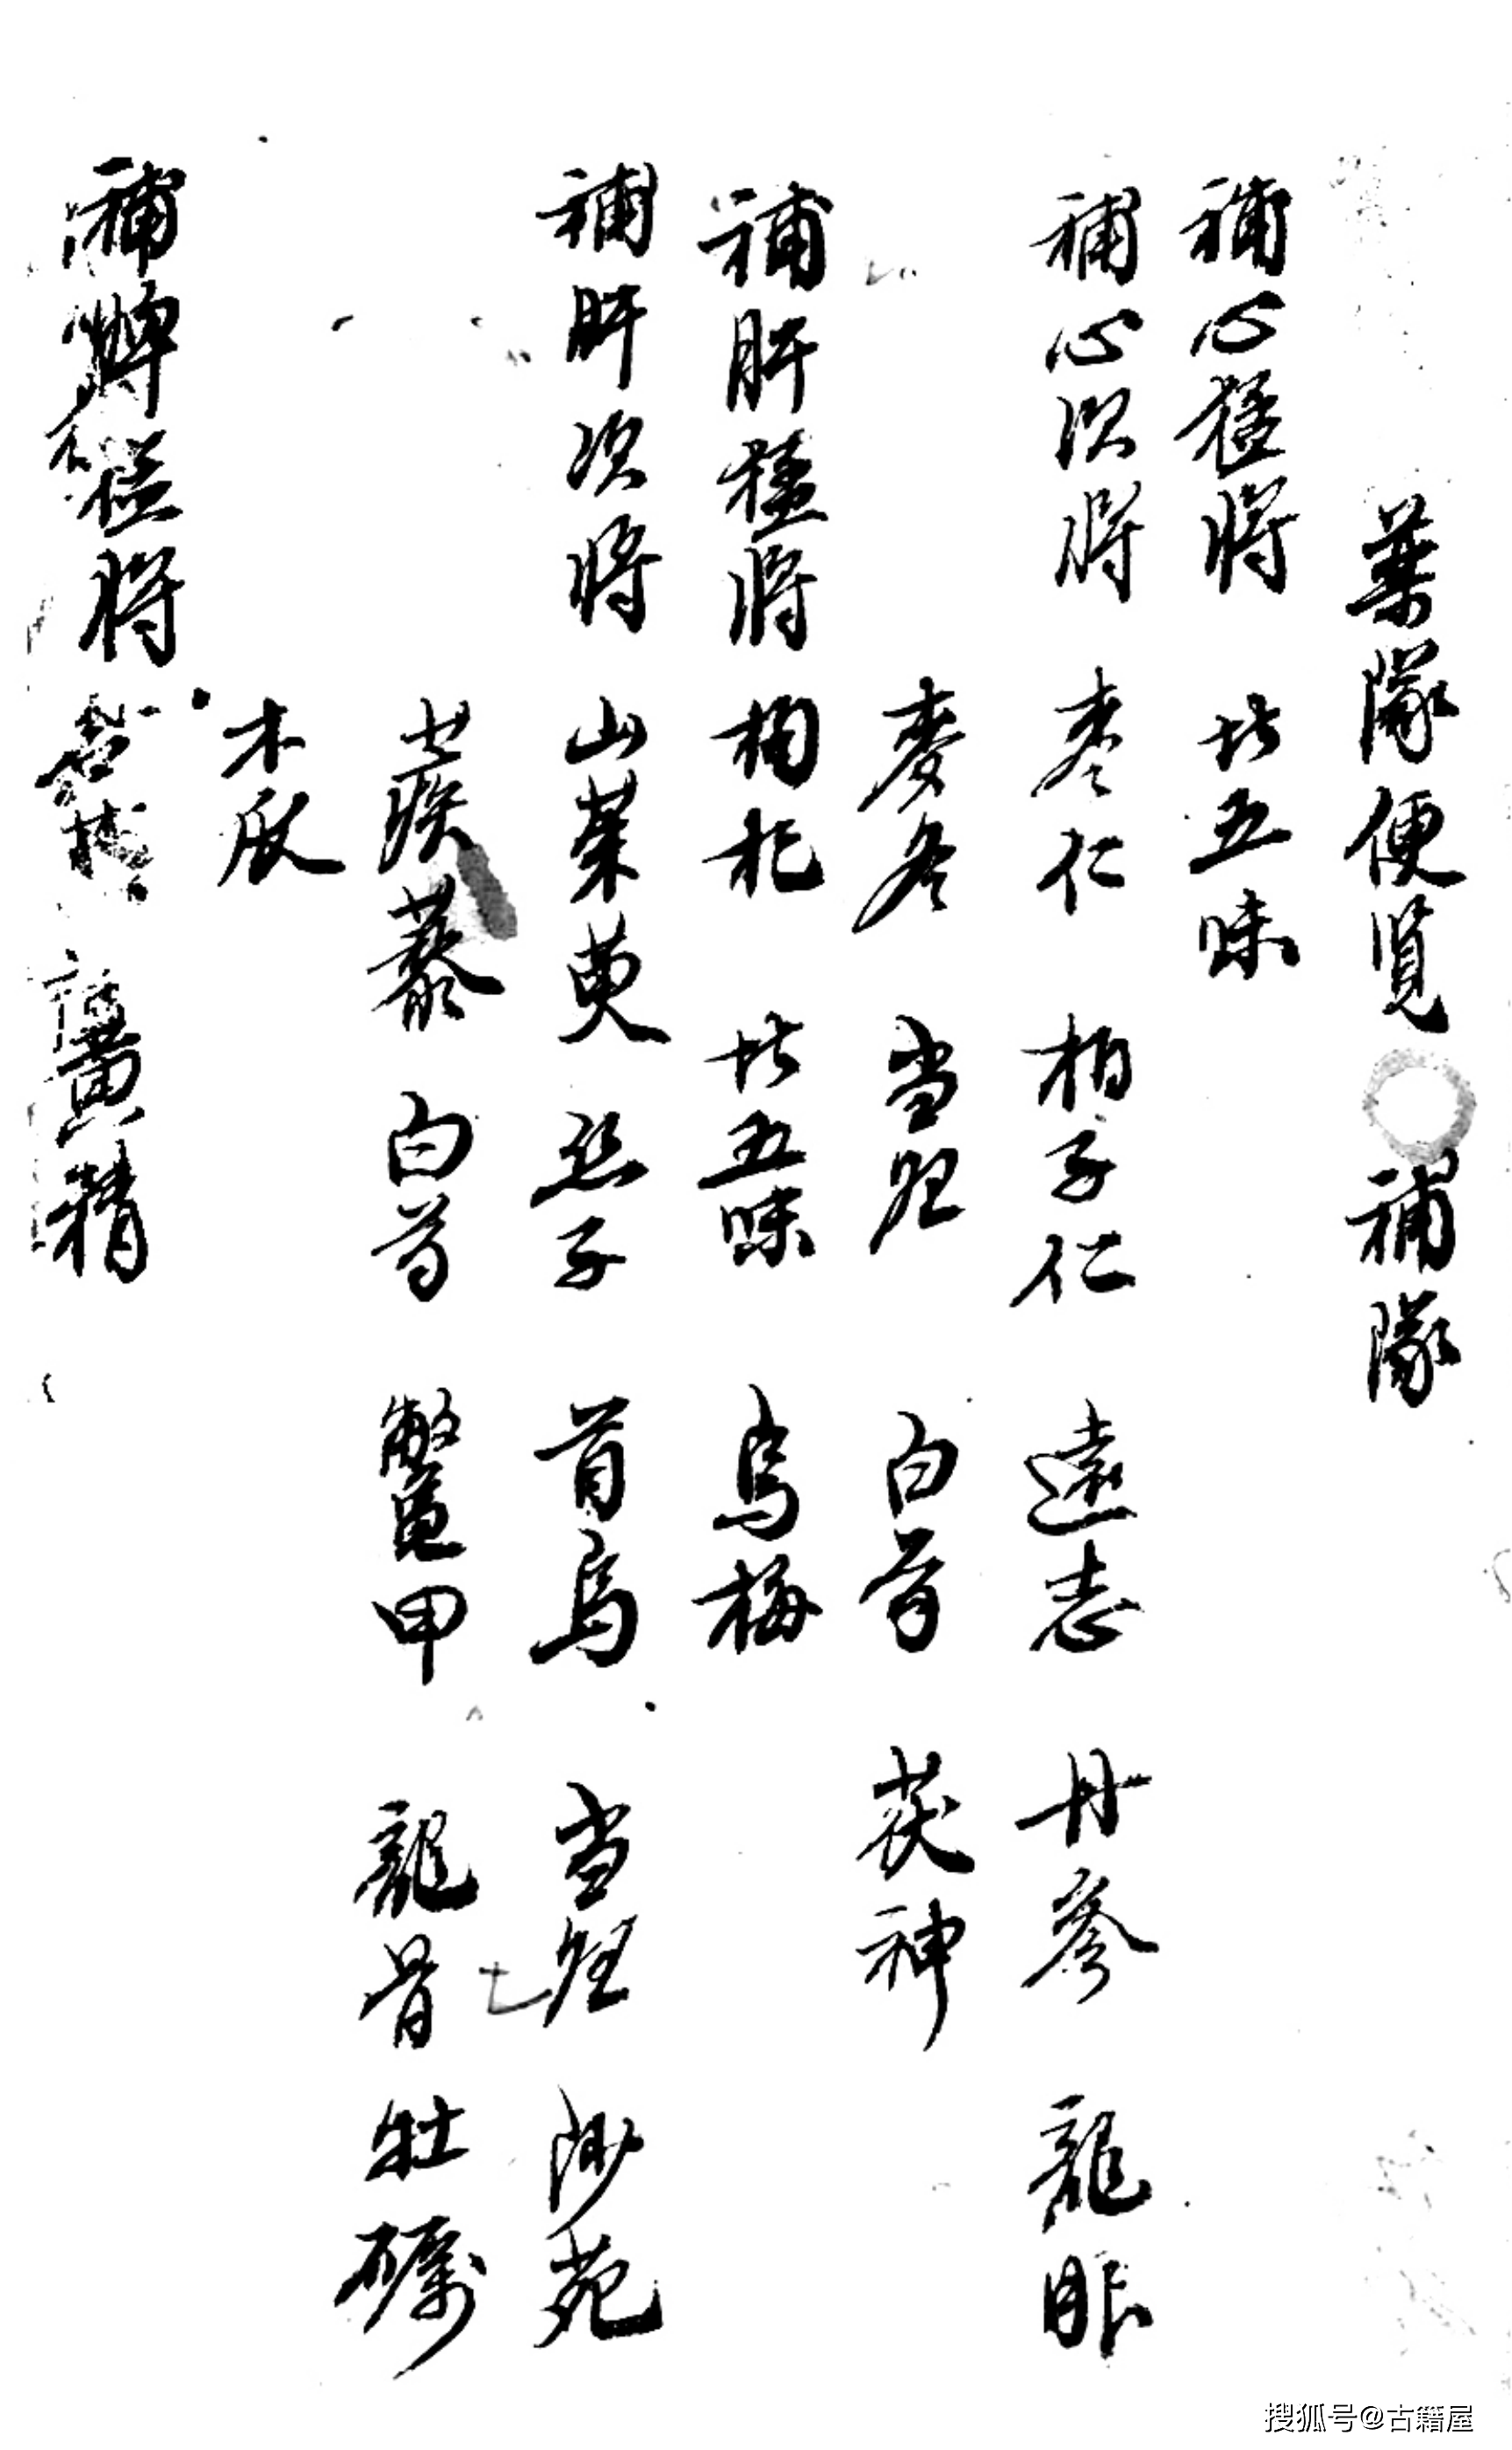 藥隊便覽 補隊
補心猛將 北五味
補心次將 枣仁 柏子仁 遠志 丹參 龍眼
麥冬 当归 白芍 茯神
補肝猛將 枸杞 北五味 烏梅
補肝次將 山茱萸 丝子 首烏 当归 沙苑
蒺藜 白芍 鱉甲 龍骨 牡礪
木瓜
補脾猛將 黄精
搜狐号@古籍屋